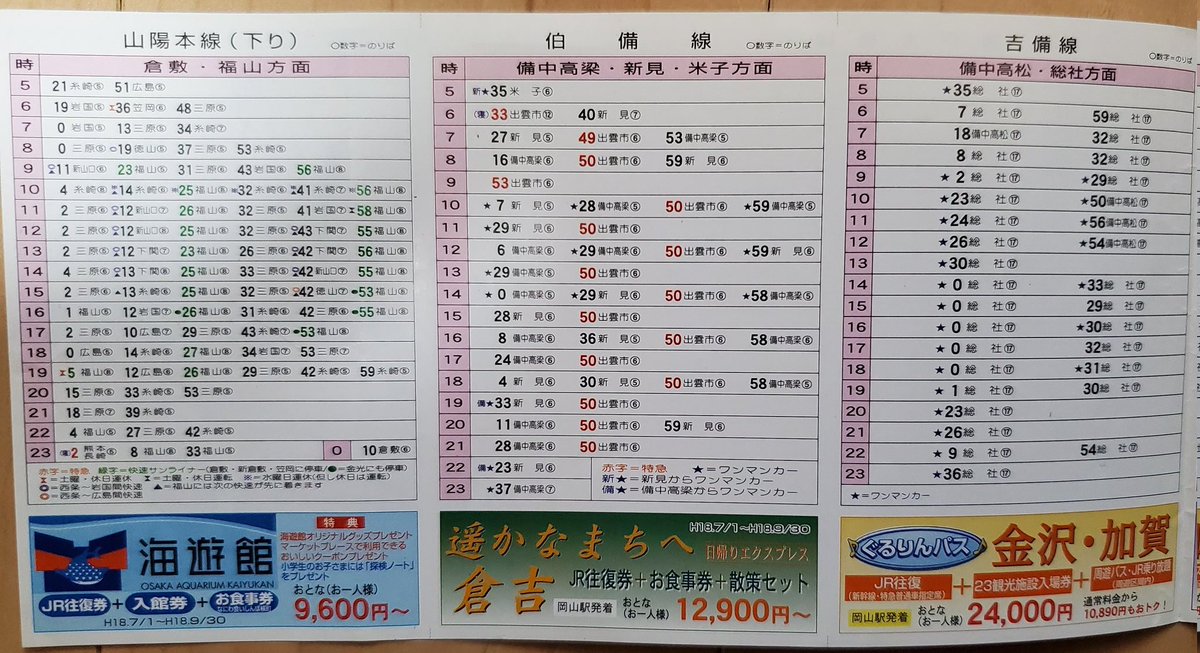 山陽本線(下り) ○数字=のりば
時 倉敷・福山方面
5 21糸崎⑤ 51広島⑤
6 19岩国⑤ 36笠岡⑥ 48三原⑤
7 0岩国⑤ 13三原⑤ 34糸崎⑦
8 0三原⑤ 19徳山⑤ 37三原⑤ 53糸崎⑤
9 11新山口⑥ 23福山⑤ 31三原⑥ 43岩国⑥ 56福山⑧
10 4糸崎⑧ 14糸崎⑥ 25福山⑧ 32糸崎⑥ 41糸崎⑦ 56福山⑧
11 2三原⑥ 12新山口⑦ 26福山⑧ 32三原⑤ 41岩国⑦ 58福山⑧
12 2三原⑤ 12新山口⑧ 25福山⑧ 32三原⑤ 43下関⑦ 55福山⑧
13 2三原⑥ 12下関⑦ 23福山⑧ 26三原⑥ 42下関⑦ 56福山⑧
14 4三原⑥ 13下関⑧ 25福山⑧ 33三原⑤ 42新山口⑦ 55福山⑧
15 2三原⑥ ▲13糸崎⑥ 25福山⑧ 32三原⑤ 42徳山⑦ ●53福山⑧
16 1福山⑤ 12岩国⑦ ●26福山⑧ 31糸崎⑥ 42三原⑥ ●55福山⑧
17 2三原⑤ 10広島⑦ 29三原⑤ 43糸崎⑦ ●53福山⑧
18 0広島⑥ 14糸崎⑥ 27福山⑧ 34岩国⑦ 53三原⑦
19 5福山⑧ 12広島⑥ 26福山⑧ 29三原⑤ 42糸崎⑤ 59糸崎⑤
20 15三原⑥ 33糸崎⑤ 53三原⑤
21 18三原⑦ 39糸崎⑤
22 4福山⑥ 27三原⑤ 42糸崎⑤
23 2熊本長崎⑤ 8福山⑧ 33福山⑤ 0 10倉敷⑥
赤字=特急 緑字=快速サンライナー(倉敷・新倉敷・笠岡に停車/●=金光にも停車)
=土曜・休日運休 =土曜・休日運転 ※=水曜日運休(但し休日は運転)
=西条~岩国間快速 ▲=福山には次の快速が先に着きます
=西条~広島間快速
伯備線 ○数字=のりば
時 備中高梁・新見・米子方面
5 新★35米子⑥
6 33出雲市⑫ 40新見⑦
7 27新見⑤ 49出雲市⑥ 53備中高梁⑤
8 16備中高梁⑥ 50出雲市⑥ 59新見⑥
9 53出雲市⑥
10 ★7新見⑤ ★28備中高梁⑤ 50出雲市⑥ ★59備中高梁⑤
11 ★29新見⑥ 50出雲市⑥
12 6備中高梁⑥ ★29備中高梁⑥ 50出雲市⑥ ★59新見⑥
13 ★29備中高梁⑤ 50出雲市⑥
14 ★0備中高梁⑤ ★29新見⑥ 50出雲市⑥ ★58備中高梁⑤
15 28新見⑥ 50出雲市⑥
16 8備中高梁⑥ 36新見⑤ 50出雲市⑥ 58備中高梁⑥
17 24備中高梁⑥ 50出雲市⑥
18 4新見⑥ 30新見⑤ 50出雲市⑥ 58備中高梁⑤
19 備★33新見⑥ 50出雲市⑥
20 11備中高梁⑥ 50出雲市⑥ 59新見⑥
21 28備中高梁⑥ 50出雲市⑥
22 備★23新見⑥
23 ★37備中高梁⑦
赤字=特急 ★=ワンマンカー
新★=新見からワンマンカー
備★=備中高梁からワンマンカー
吉備線 ○数字=のりば
時 備中高松・総社方面
5 ★35総社⑰
6 7総社⑰ 59総社⑰
7 18備中高松⑰ 32総社⑰
8 8総社⑰ 32総社⑰
9 ★2総社⑰ ★29総社⑰
10 ★23総社⑰ ★50備中高松⑰
11 ★24総社⑰ ★56備中高松⑰
12 ★26総社⑰ ★54備中高松⑰
13 ★30総社⑰
14 ★0総社⑰ ★33総社⑰
15 ★0総社⑰ 29総社⑰
16 ★0総社⑰ ★30総社⑰
17 ★0総社⑰ 32総社⑰
18 ★0総社⑰ ★31総社⑰
19 ★1総社⑰ 30総社⑰
20 ★23総社⑰
21 ★26総社⑰
22 ★9総社⑰ 54総社⑰
23 ★36総社⑰
★=ワンマンカー
海遊館
OSAKA AQUARIUM KAIYUKAN
JR往復券+入館券+お食事券
なにわ食いしんぼ横町
H18.7/1~H18.9/30
特典
海遊館オリジナルグッズプレゼント
マーケットプレースで利用できる
おいしいクーポンプレゼント
小学生のお子さまには「探検ノート」
をプレゼント
おとな(お一人様)
9,600円~
遥かなまちへ H18.7/1~H18.9/30
日帰りエクスプレス
倉吉 JR往復券+お食事券+散策セット
岡山駅発着 おとな(お一人様) 12,900円~
ぐるりんパス 金沢・加賀
JR往復(新幹線・特急普通車指定席)+23観光施設入場券+周遊バス・JR乗り放題(周遊区間内)
岡山駅発着 おとな(お一人様) 24,000円 通常料金から
10,890円もおトク!